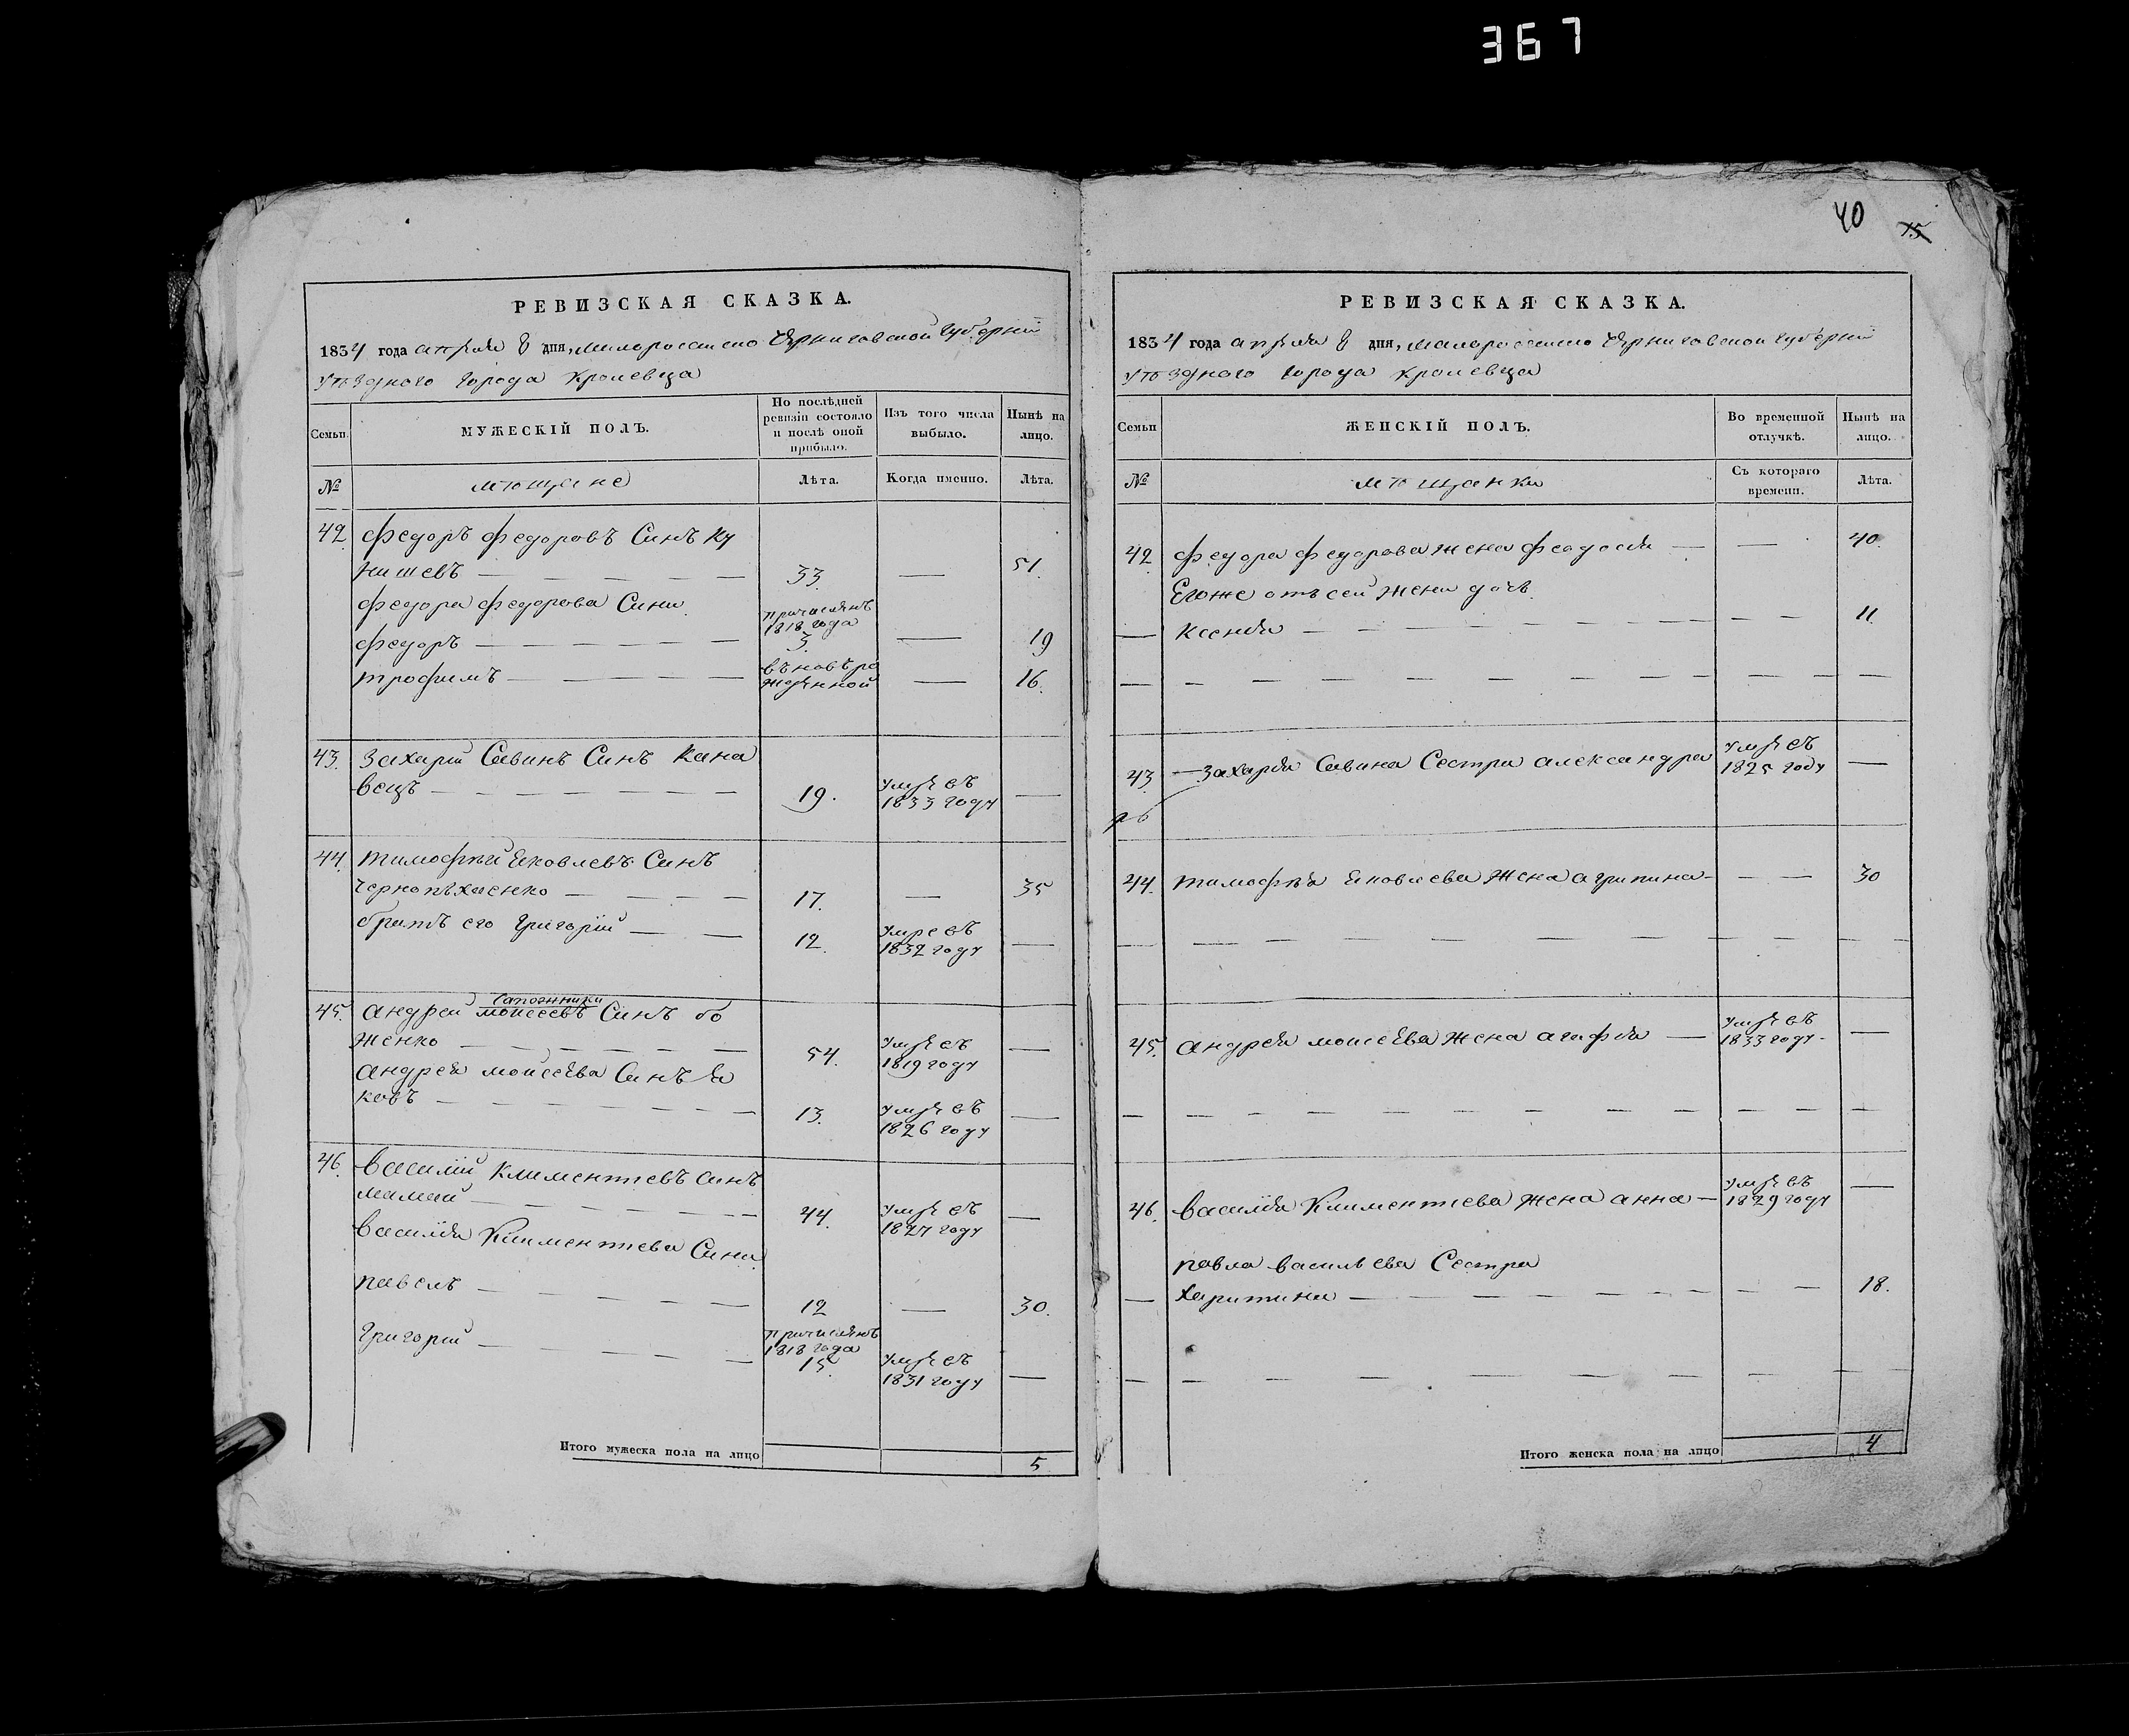 367
40
15
РЕВИЗСКАЯ СКАЗКА.
1834 года апреля 8 дня, малоросийско Черниговской Губернiи
уѣздного города Кролевца
Семьи.
МУЖЕСКІЙ ПОЛЪ.
По послѣдней ревизіи состояло и послѣ оной прибыло.
Изъ того числа выбыло.
Нынѣ на лицо.
№
мѣщане
Лѣта.
Когда именно.
Лѣта.
42 Федоръ Федоровъ Синъ Ку
нишевъ — 33 — 51.
Федора Федорова Сини
причислѣнъ
1818 года
Федоръ — 3. — 19
въновъро
трофимъ — жденной — 16.
43. Захарій Савинъ Синъ Кана
вецъ — 19. умре въ 1833 году —
44. тимофѣй Яковлевъ Синъ
чернопѣхиенко — 17. — 35
братъ его Григорій — 12. умре въ 1832 году —
сапожники
45. Андрей моисеевъ Синъ бо
женко — 54. умре въ 1819 году —
Андрея моисеева Синъ Я
ковъ — 13. умре въ 1826 году —
46. Василій Климентиевъ Синъ
мамай — 44. умре въ 1827 году —
Василія Климентиева Сини
павелъ — 12 — 30.
причислѣнъ
1818 года
Григорій — 15. умре въ 1831 году —
Итого мужеска пола на лицо 5
РЕВИЗСКАЯ СКАЗКА.
1834 года апреля 8 дня, малоросийско Черниговской Губерніи
уѣздного города Кролевца
Семьи
ЖЕНСКІЙ ПОЛЪ.
Во временной отлучкѣ.
Нынѣ на лицо.
№
мѣщанки
Съ котораго времени.
Лѣта.
42 Федора Федорова жена Феодосія — — 40.
Егоже отъ сей жени дочь
— Ксенія — — 11.
43. Захарія Савина Сестра александра умре въ 1825 году —
44. тимофѣя Яковлева жена агрипина — — 30
45. Андрея моисеева жена агафія — умре въ 1833 году —
46. Василія Климентиева жена анна — умре въ 1829 году —
павла васильева Сестра
— Харитина — — 18.
Итого женска пола на лицо 4